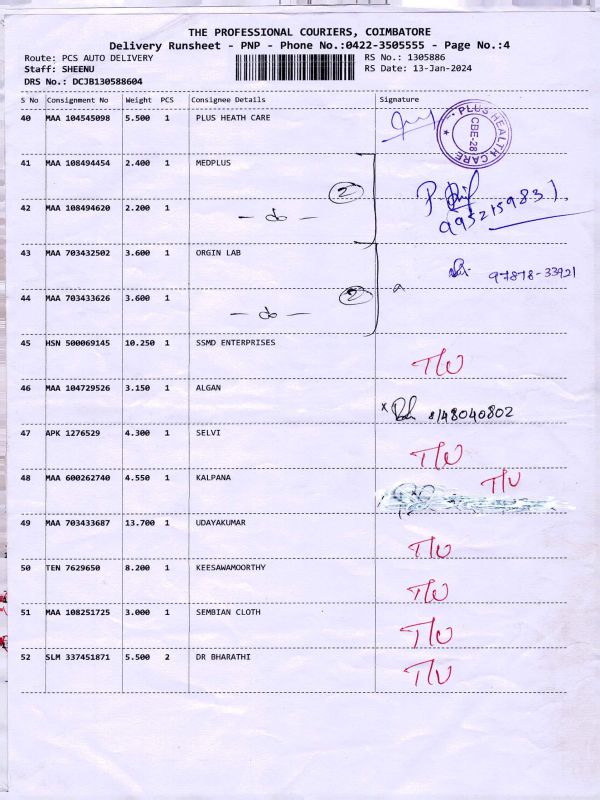 THE PROFESSIONAL COURIERS, COIMBATORE
Delivery Runsheet - PNP - Phone No.:0422-3505555 - Page No.:4
Route: PCS AUTO DELIVERY RS No.: 1305886
Staff: SHEENU RS Date: 13-Jan-2024
DRS No.: DCJB130588604
S No Consignment No Weight PCS Consignee Details Signature
40 MAA 104545098 5.500 1 PLUS HEATH CARE
PLUS HEALTH CARE
CBE-28
41 MAA 108494454 2.400 1 MEDPLUS
2
42 MAA 108494620 2.200 1 - do -
9952159831
43 MAA 703432502 3.600 1 ORGIN LAB
97878-33921
44 MAA 703433626 3.600 1 - do - 2
45 HSN 500069145 10.250 1 SSMD ENTERPRISES T/U
46 MAA 104729526 3.150 1 ALGAN
8148040802
47 APK 1276529 4.300 1 SELVI T/U
48 MAA 600262740 4.550 1 KALPANA T/U
49 MAA 703433687 13.700 1 UDAYAKUMAR T/U
50 TEN 7629650 8.200 1 KEESAWAMOORTHY T/U
51 MAA 108251725 3.000 1 SEMBIAN CLOTH T/U
52 SLM 337451871 5.500 2 DR BHARATHI T/U